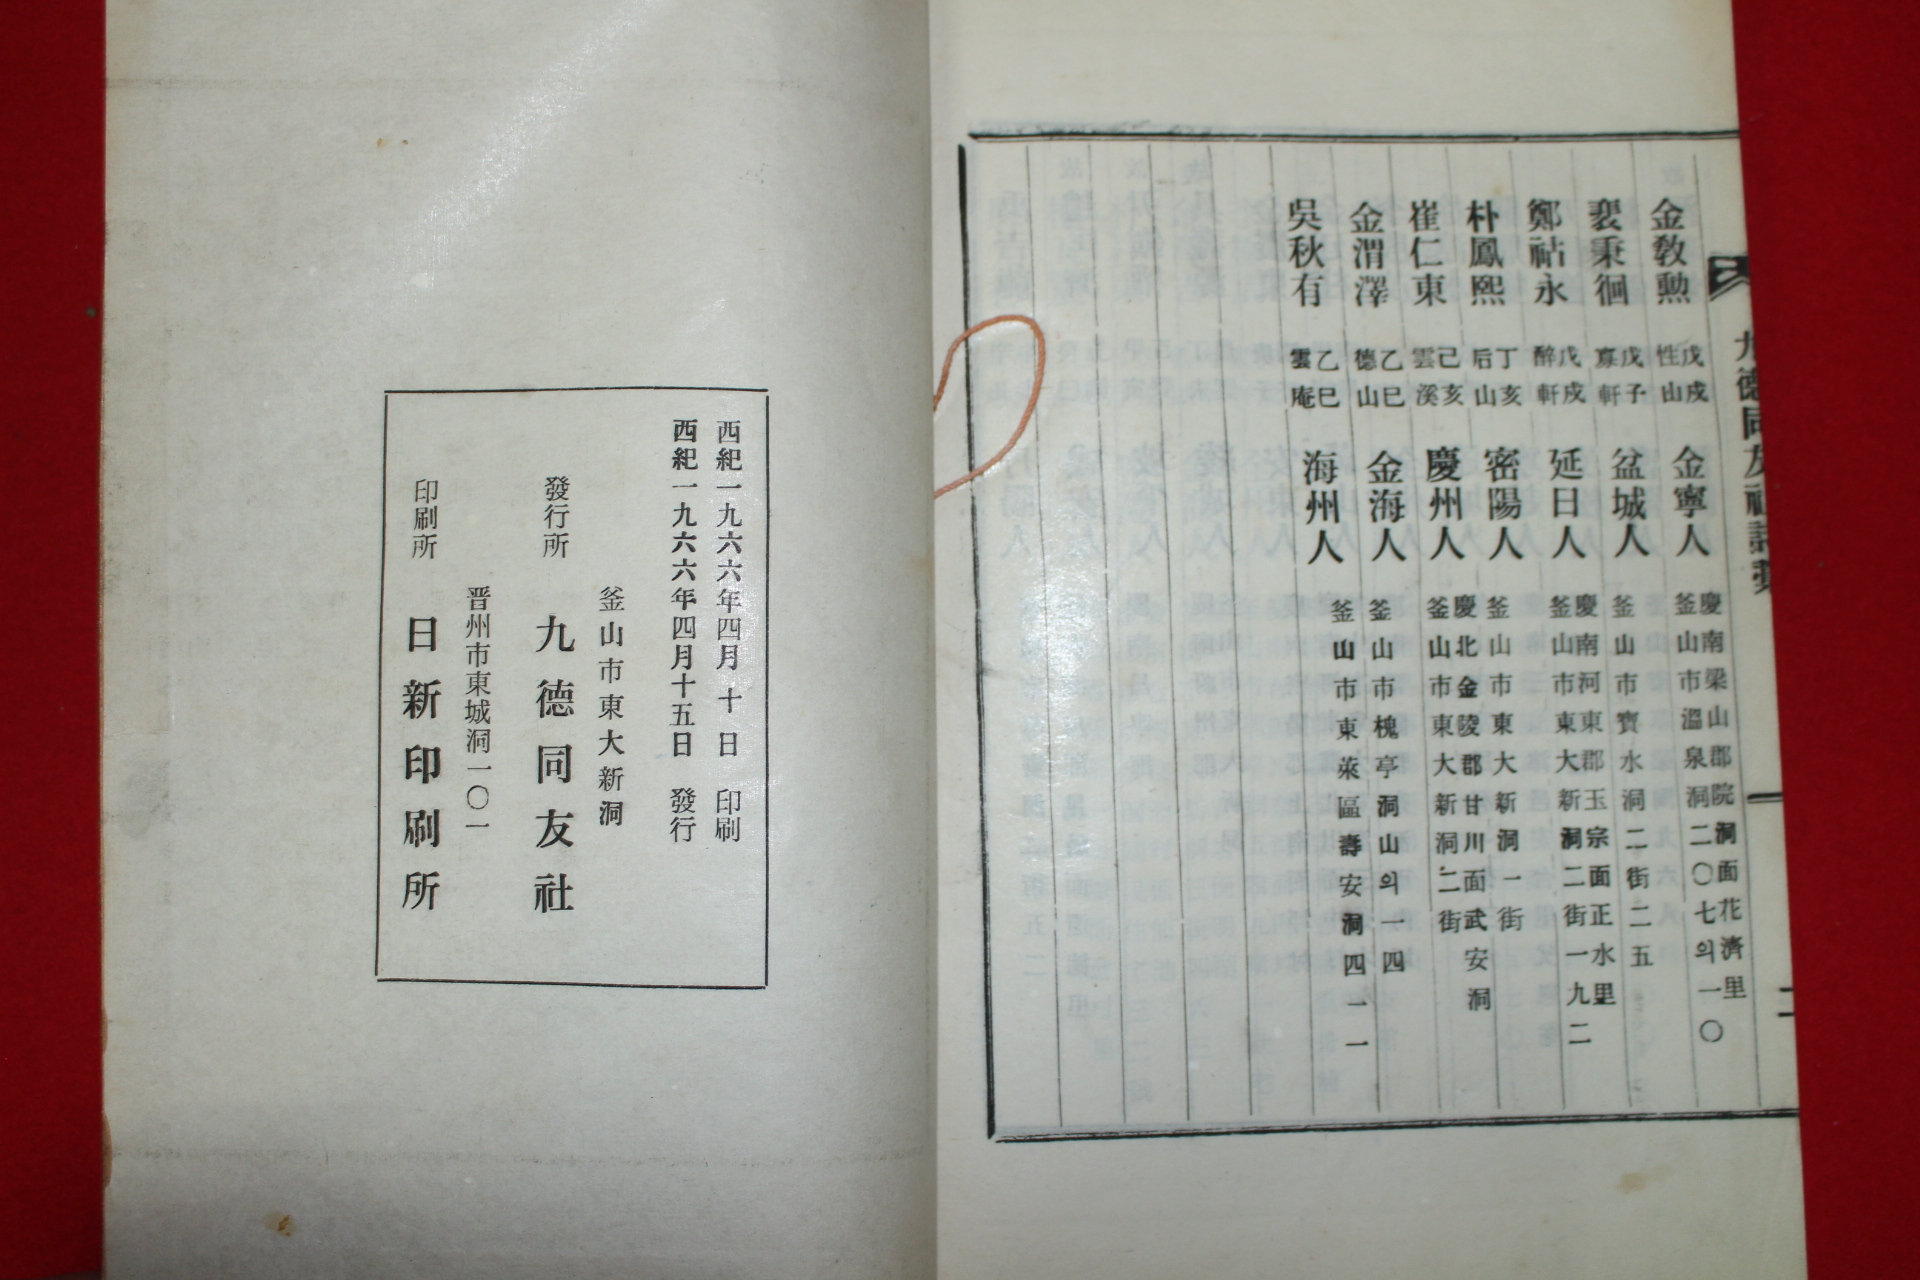 九德同友社
二
金教勲 戊戍 性山 金寧人 慶南梁山郡院洞面花濟里 釜山市溫泉洞二〇七의一〇
裵秉徊 戊子 軒 盆城人 釜山市寶水洞二街二五
鄭祜永 戊戍 醉軒 延日人 慶南河東郡玉宗面正水里 釜山市東大新洞二街一九二
朴鳳熙 丁亥 后山 密陽人 釜山市東大新洞一街
崔仁東 己亥 雲溪 慶州人 慶北金陵郡甘川面武安洞 釜山市東大新洞二街
金渭澤 乙巳 德山 金海人 釜山市槐亭洞山의一四
吳秋有 乙巳 雲庵 海州人 釜山市東萊區壽安洞四一一
西紀一九六六年四月十日 印刷
西紀一九六六年四月十五日 發行
釜山市東大新洞
發行所 九德同友社
晋州市東城洞一〇一
印刷所 日新印刷所